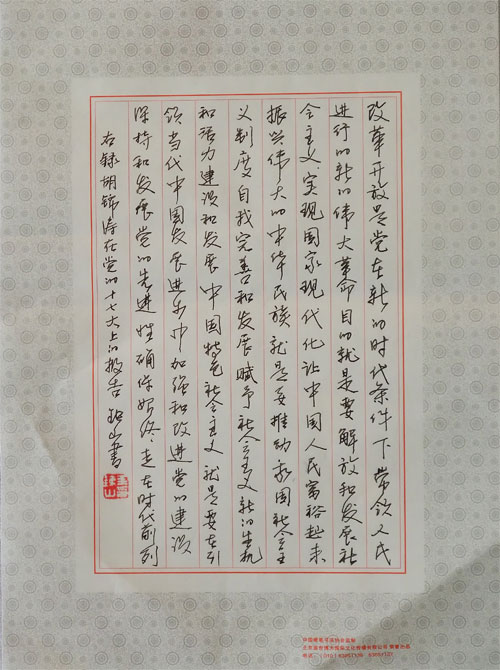 改革开放是党在新的时代条件下带领人民
进行的新的伟大革命目的就是要解放和发展社
会主义实现国家现代化让中国人民富裕起来
振兴伟大的中华民族就是要推动我国社会主
义制度自我完善和发展赋予社会主义新的生机
和活力建设和发展中国特色社会主义就是要在引
领当代中国发展进步中加强和改进党的建设
保持和发展党的先进性确保始终走在时代前列
右录胡锦涛在党的十七大上的报告 山书